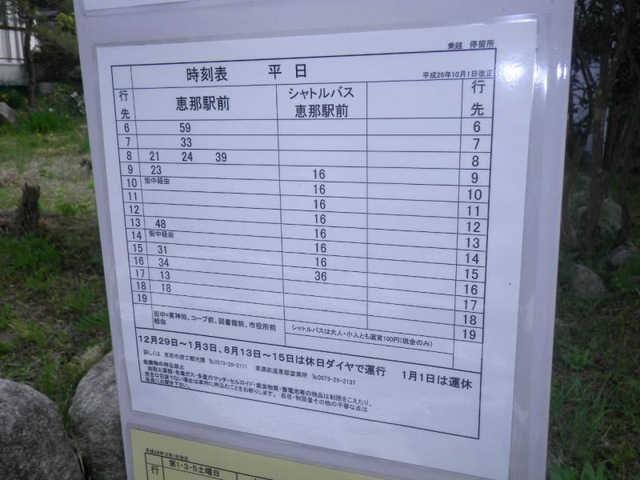 乗越 停留所
時刻表 平日
平成26年10月1日改正
行先 恵那駅前 シャトルバス 恵那駅前 行先
6 59 6
7 33 7
8 21 24 39 8
9 23 16 9
10 街中経由 16 10
11 16 11
12 16 12
13 48 16 13
14 街中経由 16 14
15 31 16 15
16 34 16 16
17 13 36 17
18 18 18
19 19
街中=東神田、コープ前、図書館前、市役所前
経由
シャトルバスは大人・小人とも運賃100円(現金のみ)
12月29日～1月3日、8月13日～15日は休日ダイヤで運行 1月1日は運休
詳しくは 恵那市商工観光課 ℡0573-26-2111 東濃鉄道恵那営業所 ℡0573-26-2137
危険物の持込禁止
第1・3・5土曜日
行